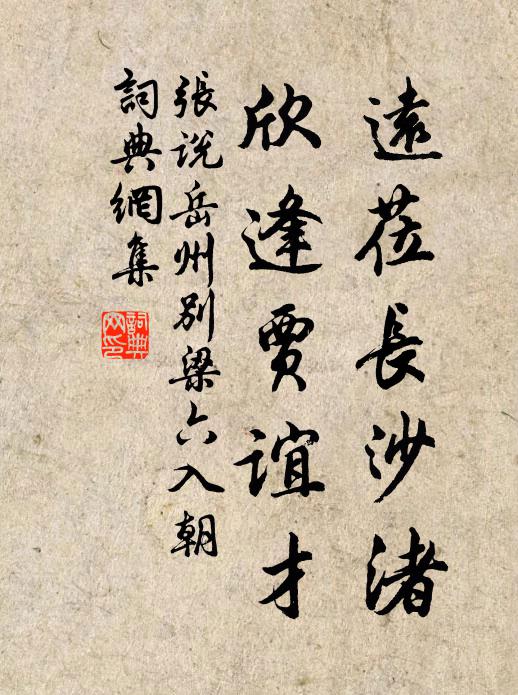 遠莅長沙渚
欣逢賈誼才
張説岳州别梁六入朝
詞典網集
詞典
网印